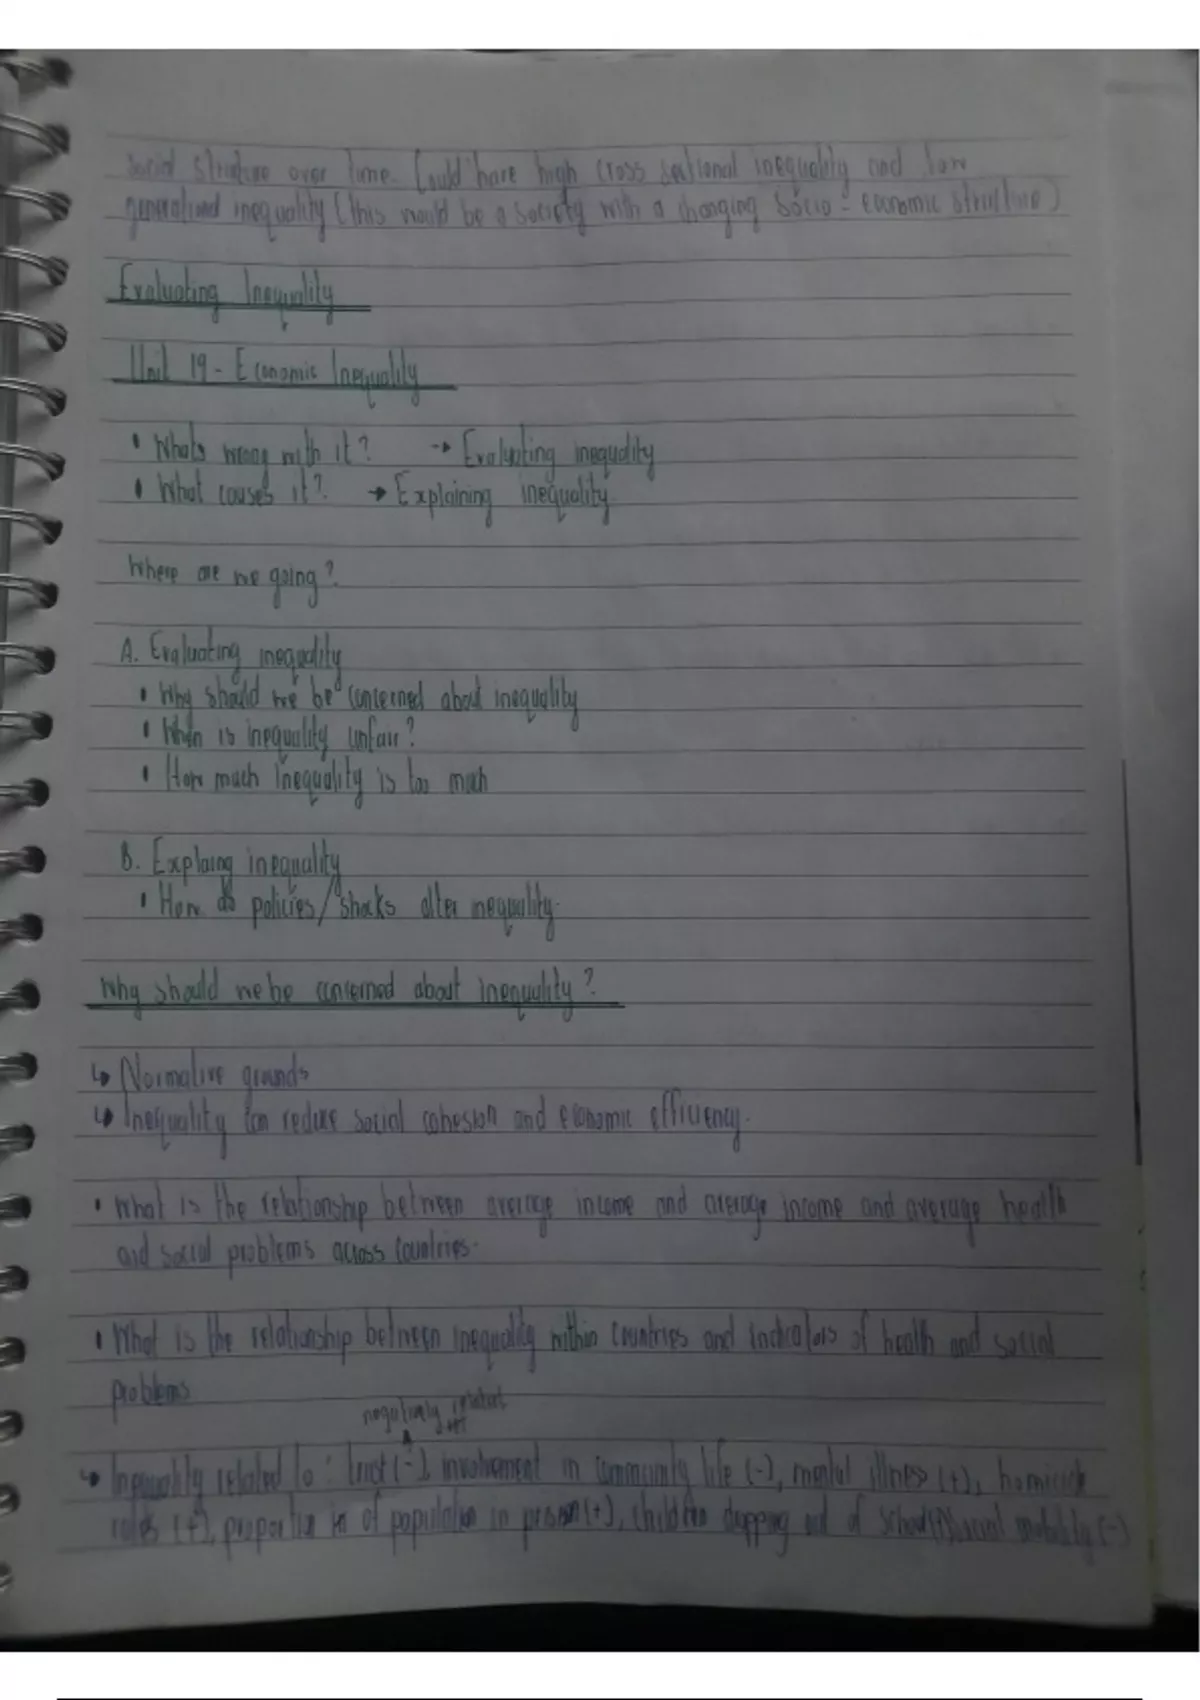 social structure over time. Could have high cross sectional inequality and low
generalised inequality (this would be a society with a changing socio-economic structure)
Evaluating Inequality
Unit 19 - Economic Inequality
• Whats wrong with it? → Evaluating inequality
• What causes it? → Explaining inequality
Where are we going?
A. Evaluating inequality
• Why should we be concerned about inequality
• When is inequality unfair?
• How much inequality is too much
B. Explaing inequality
• How do policies/shocks alter inequality.
Why should we be concerned about inequality?
↳ Normative grounds
↳ Inequality can reduce social cohesion and economic efficiency.
• What is the relationship between average income and average income and average health
and social problems across countries.
• What is the relationship between inequality within countries and indicators of health and social
problems
negatively related
↳ Inequality related to : trust (-) involvement in community life (-), mental illness (+), homicide
rates (+), proportion of population in prison (+), children dropping out of school (+), social mobility (-)